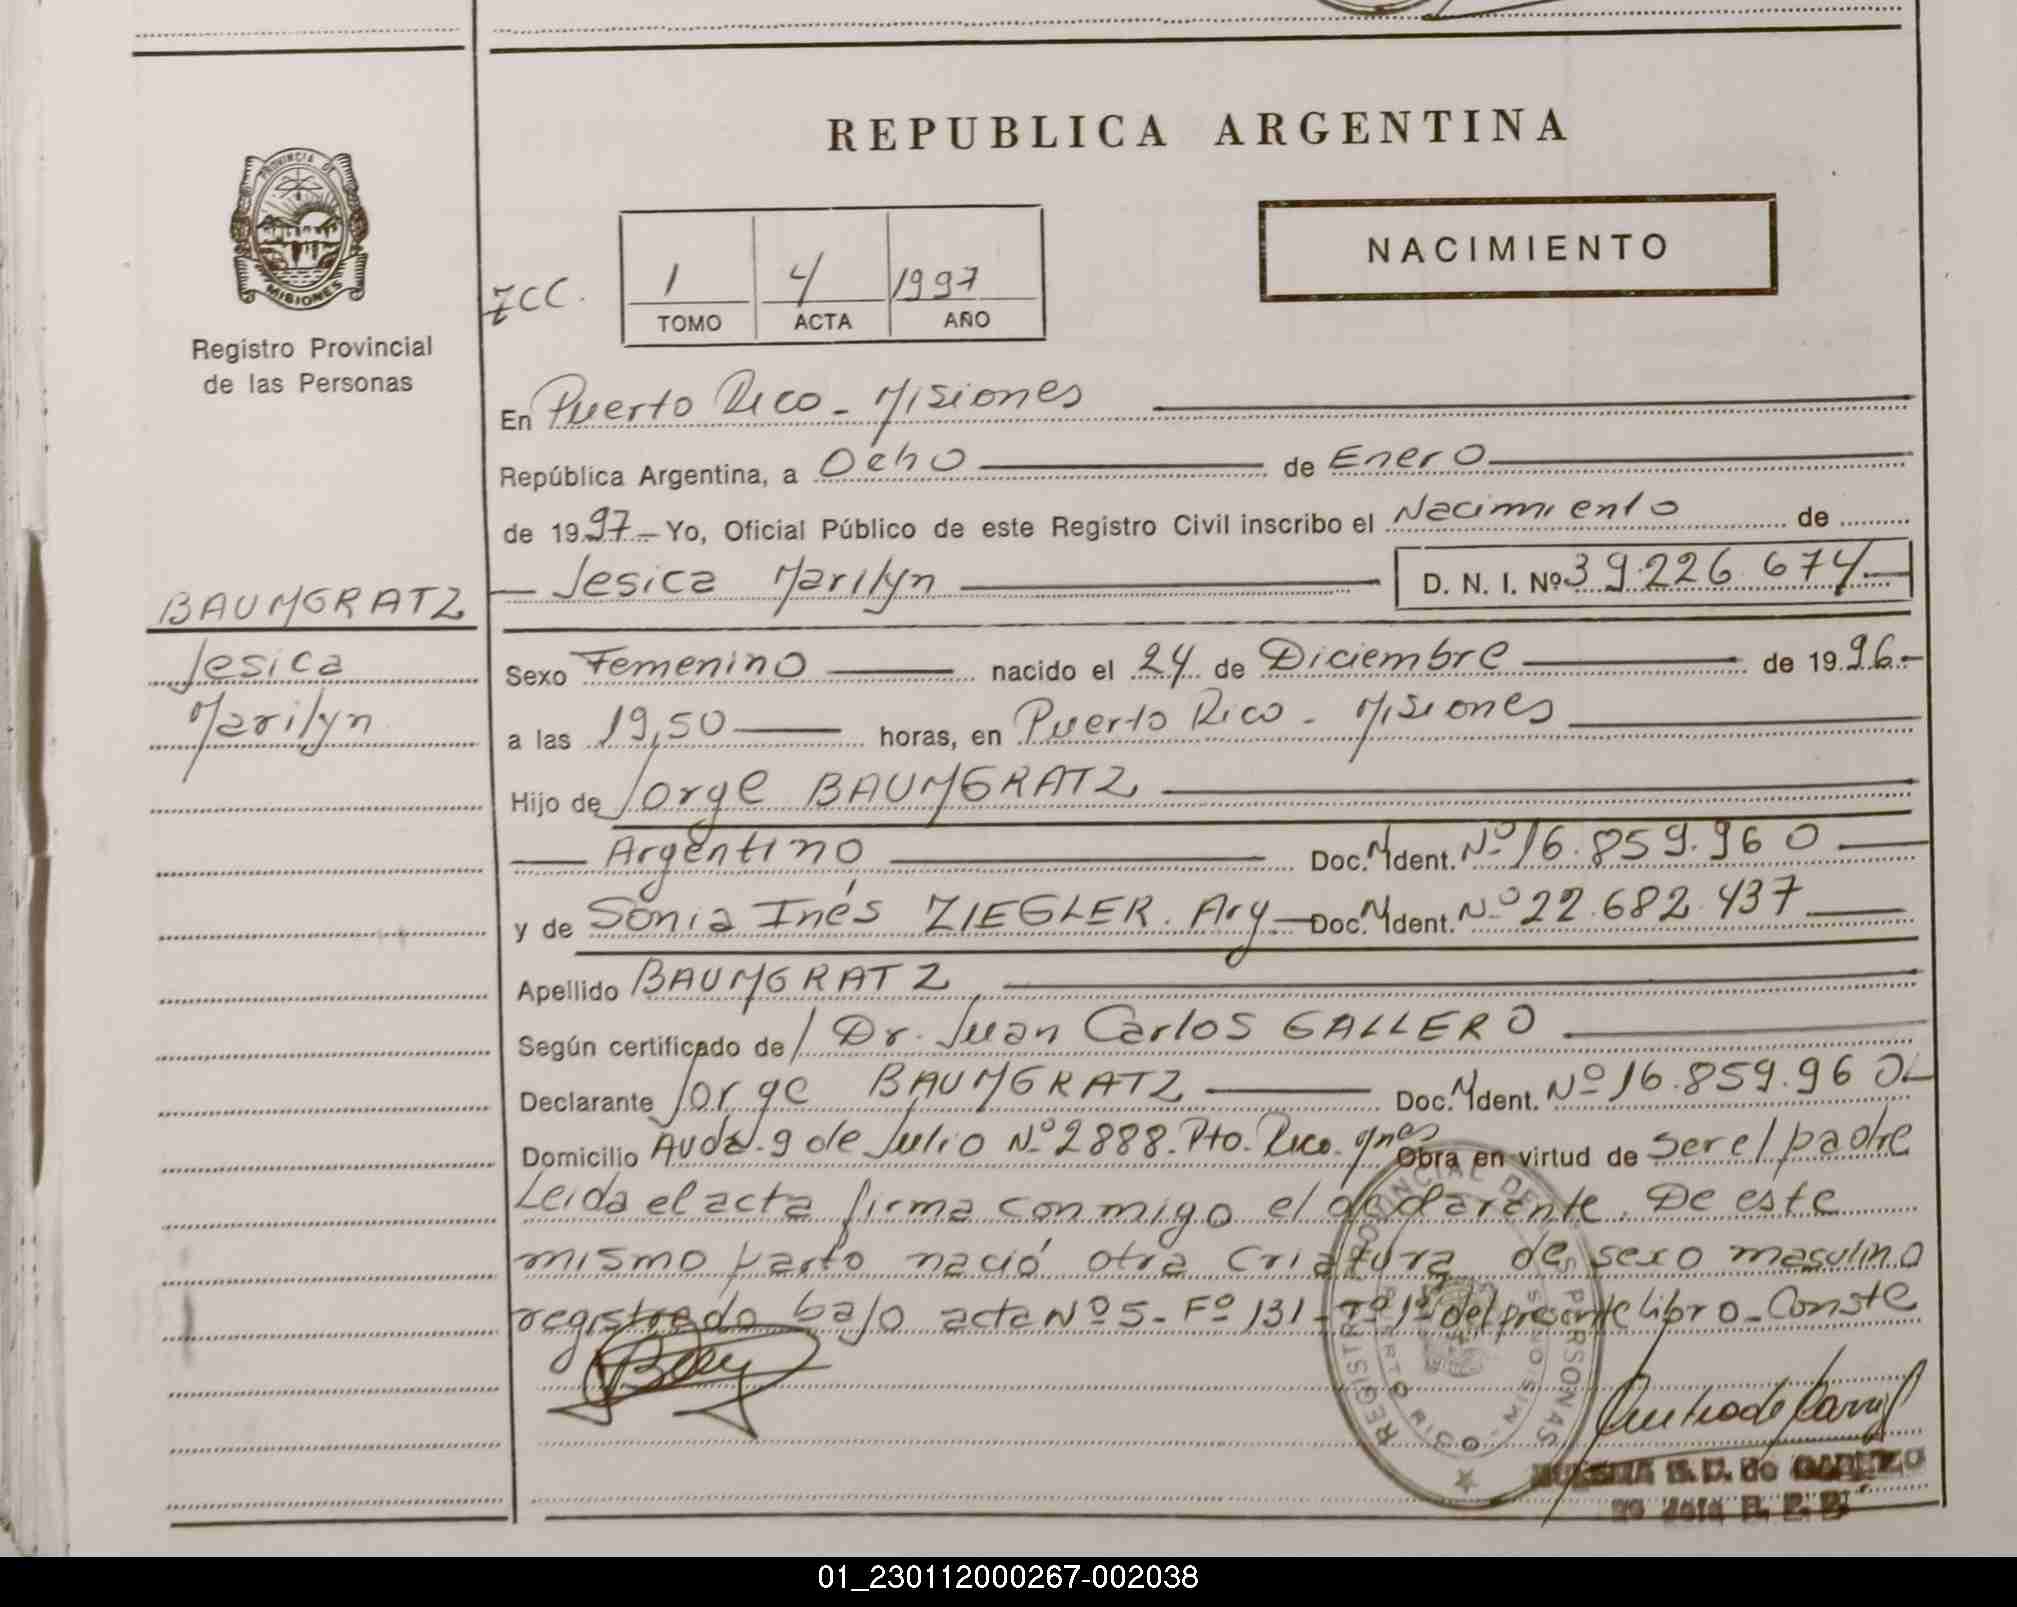 REPUBLICA ARGENTINA
PROVINCIA DE
MISIONES
Registro Provincial
de las Personas
NACIMIENTO
1 4 1997
TOMO ACTA AÑO
En Puerto Rico - Misiones
República Argentina, a Ocho de Enero
de 1997.- Yo, Oficial Público de este Registro Civil inscribo el Nacimiento de
Jesica Marilyn D. N. I. Nº 39.226.674
BAUMGRATZ
Jesica
Marilyn
Sexo Femenino nacido el 24 de Diciembre de 1996.-
a las 19,50 horas, en Puerto Rico - Misiones
Hijo de Jorge BAUMGRATZ
Argentino Doc. N Ident. Nº 16.859.960
y de Sonia Inés ZIEGLER. Arg. Doc. N Ident. Nº 22.682.437
Apellido BAUMGRATZ
Según certificado de Dr. Juan Carlos GALLERO
Declarante Jorge BAUMGRATZ Doc. N Ident. Nº 16.859.960
Domicilio Avda. 9 de Julio Nº 2888. Pto. Rico. Mnes Obra en virtud de ser el padre
Leida el acta firma conmigo el declarante. De este
mismo parto nació otra criatura de sexo masculino
registrado bajo acta Nº 5 - Fº 131 - Tº 1º del presente libro - Conste
REGISTRO PROVINCIAL DE LAS PERSONAS
PUERTO RICO
01_230112000267-002038